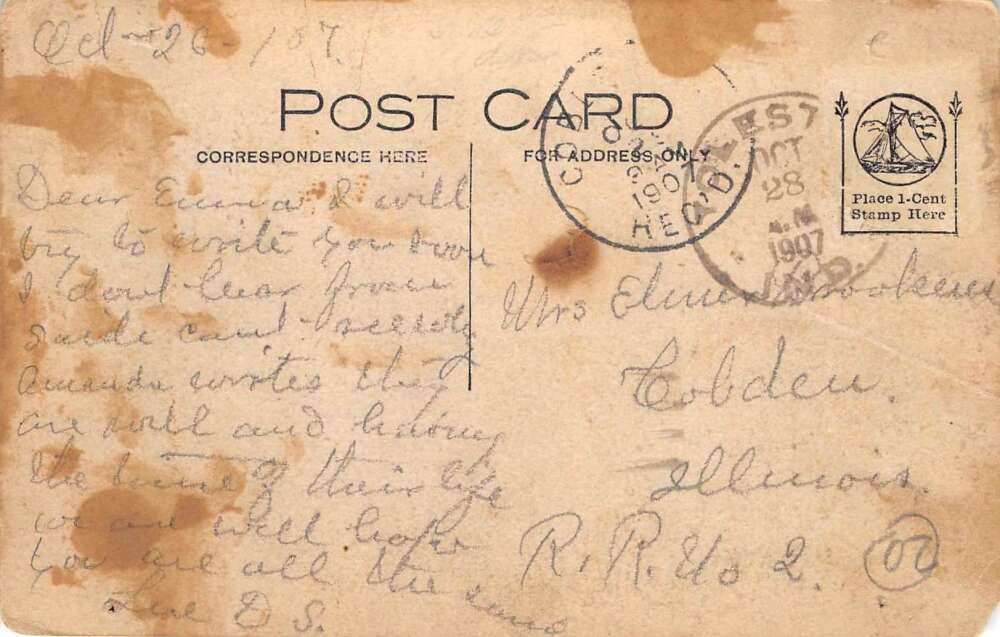 Oct 26-1907.
POST CARD
CORRESPONDENCE HERE
FOR ADDRESS ONLY
Place 1-Cent
Stamp Here
1907
REC'D.
OCT
28
1907
Dear Emma I will
try to write you soon
I dont hear from
Amanda writes they
are well and having
the time of their life
we are well hope
you are all the same
D S.
Mrs Elmer
Cobden.
Illinois.
R. R. No 2.